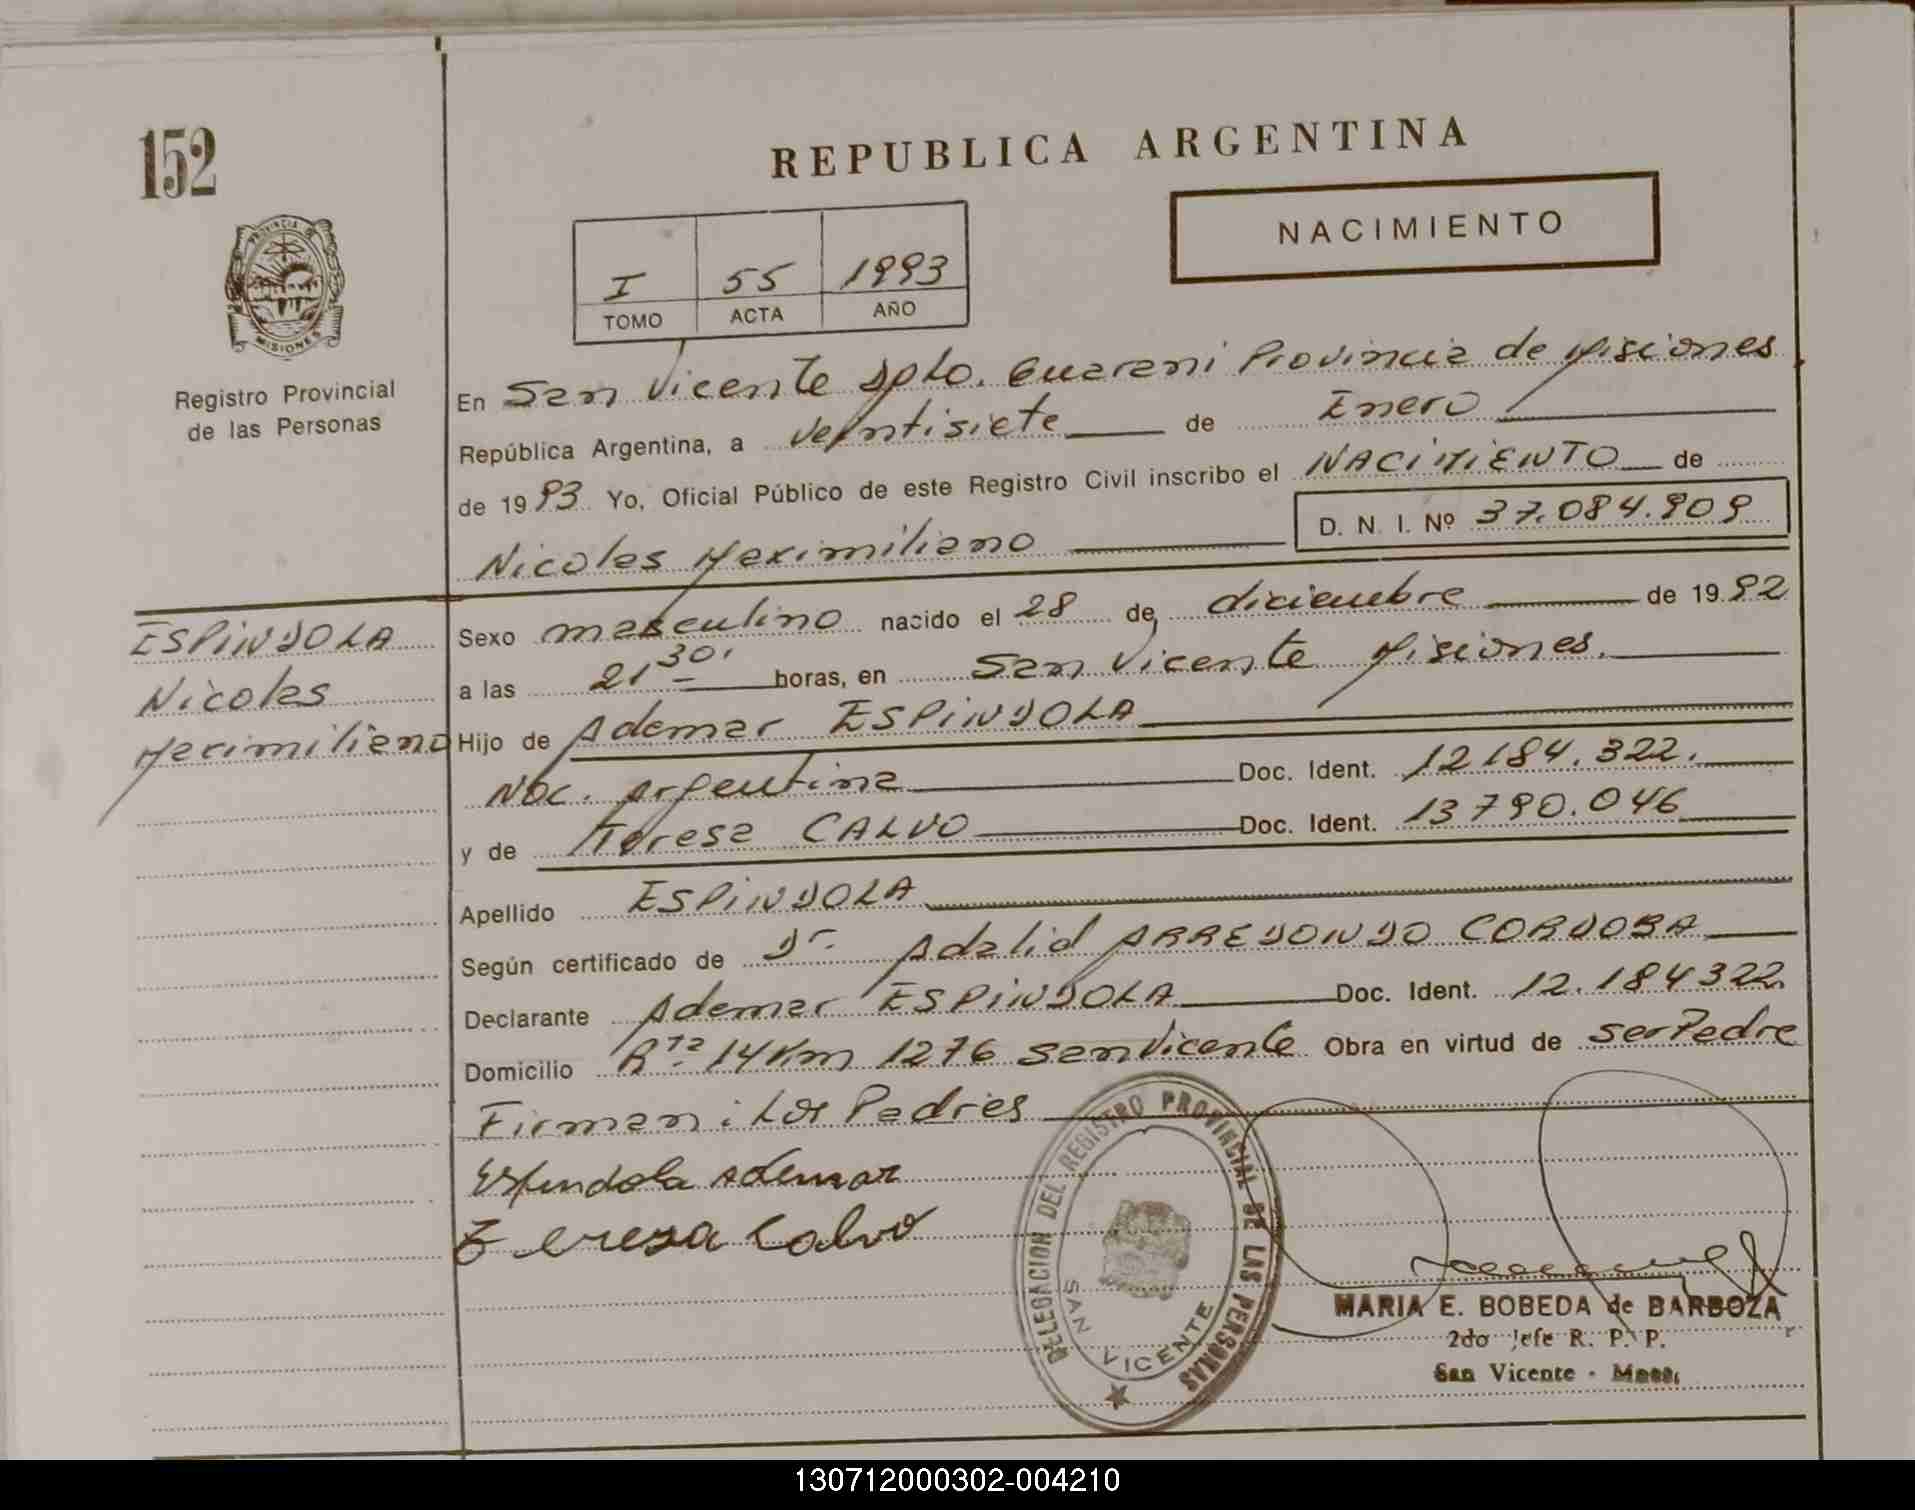 152
REPUBLICA ARGENTINA
NACIMIENTO
I 55 1993
TOMO ACTA AÑO
PROVINCIA DE
MISIONES
Registro Provincial
de las Personas
En San Vicente Dpto. Guarani Provincia de Misiones
República Argentina, a veintisiete de Enero
de 1993 Yo, Oficial Público de este Registro Civil inscribo el NACIMIENTO de
Nicolas Maximiliano D. N. I. Nº 37.084.909
ESPINDOLA
Nicolas
Maximiliano
Sexo masculino nacido el 28 de diciembre de 1992
a las 21 30' horas, en San Vicente Misiones.
Hijo de Ademar ESPINDOLA
Nac. Argentina Doc. Ident. 12184.322.
y de Teresa CALVO Doc. Ident. 13790.046
Apellido ESPINDOLA
Según certificado de Dr. Adalid ARREDONDO CORDOBA
Declarante Ademar ESPINDOLA Doc. Ident. 12.184322
Domicilio Rta. 14 Km 1276 San Vicente Obra en virtud de ser Padre
Firman: Los Padres
Espindola Ademar
Tereza Calvo
DELEGACION DEL REGISTRO PROVINCIAL DE LAS PERSONAS
SAN VICENTE
MARIA E. BOBEDA de BARBOZA
2do Jefe R. P. P.
San Vicente - Mnes.
130712000302-004210